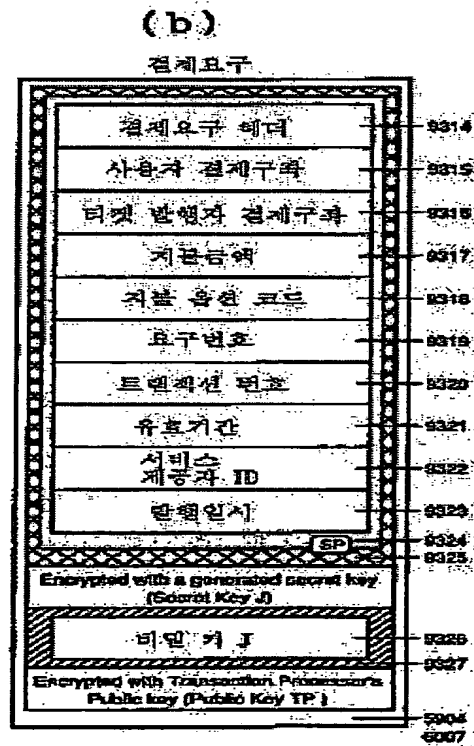 (b)
결제요구
결제요구 헤더
9314
사용자 결제구좌
9315
티켓 발행자 결제구좌
9316
지불금액
9317
지불 옵션 코드
9318
요구번호
9319
트랜잭션 번호
9320
유효기간
9321
서비스
제공자 ID
9322
발행일시
9323
SP
9324
9325
Encrypted with a generated secret key
(Secret Key J)
비밀 키 J
9326
9327
Encrypted with Transaction Processor's
Public key (Public Key TP )
5904
6007